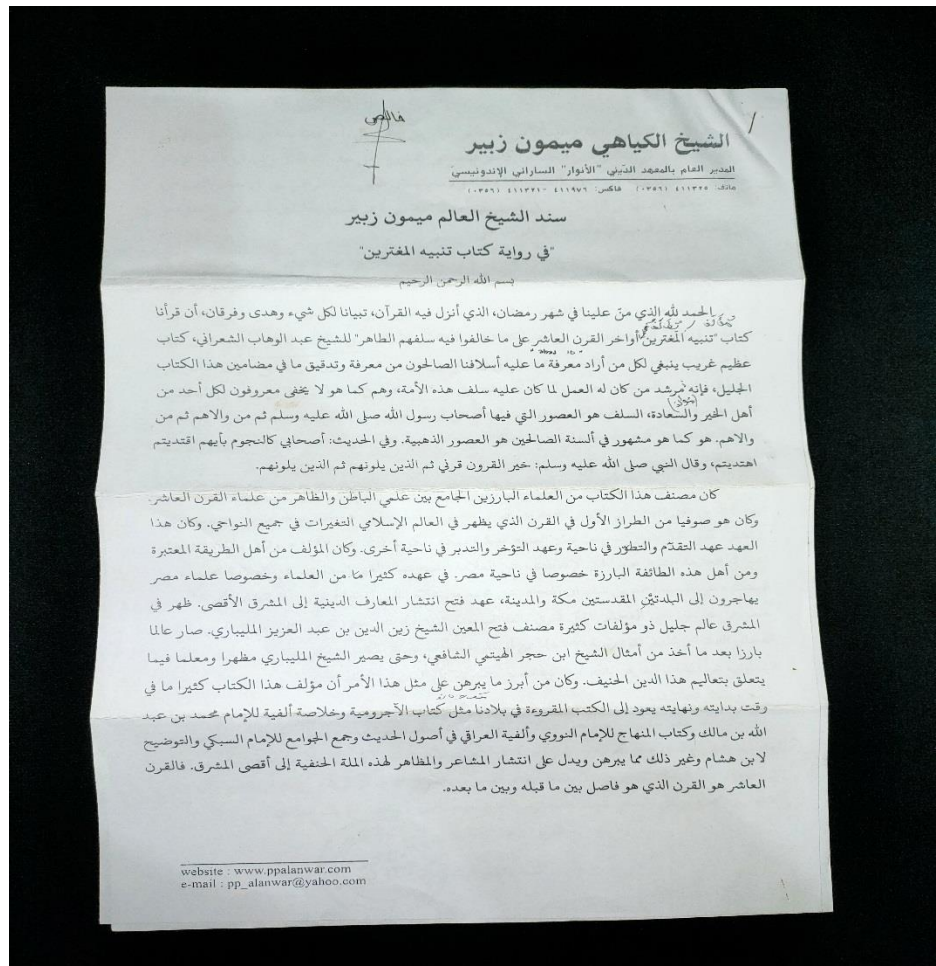 خالص
الشيخ الكياهي ميمون زبير
المدير العام بالمعهد الديني "الأنوار" الساراني الإندونيسي
هاتف: ٤١١٣٥٥ (٠٣٥٦) فاكس: ٤١١٩٧٦ - ٤١١٣٦١ (٠٣٥٦)
سند الشيخ العالم ميمون زبير
"في رواية كتاب تنبيه المغترين"
بسم الله الرحمن الرحيم
الحمد لله الذي منّ علينا في شهر رمضان، الذي أنزل فيه القرآن، تبيانا لكل شيء وهدى وفرقان، أن قرأنا
كتاب "تنبيه المغترين أواخر القرن العاشر على ما خالفوا فيه سلفهم الطاهر" للشيخ عبد الوهاب الشعراني، كتاب
عظيم غريب ينبغي لكل من أراد معرفة ما عليه أسلافنا الصالحون من معرفة وتدقيق ما في مضامين هذا الكتاب
الجليل، فإنه مرشد من كان له العمل لما كان عليه سلف هذه الأمة، وهم كما هو لا يخفى معروفون لكل أحد من
أهل الخير والسعادة، السلف هو العصور التي فيها أصحاب رسول الله صلى الله عليه وسلم ثم من والاهم ثم من
والاهم. هو كما هو مشهور في ألسنة الصالحين هو العصور الذهبية. وفي الحديث: أصحابي كالنجوم بأيهم اقتديتم
اهتديتم، وقال النبي صلى الله عليه وسلم: خير القرون قرني ثم الذين يلونهم ثم الذين يلونهم.
كان مصنف هذا الكتاب من العلماء البارزين الجامع بين علمي الباطن والظاهر من علماء القرن العاشر.
وكان هو صوفيا من الطراز الأول في القرن الذي يظهر في العالم الإسلامي التغيرات في جميع النواحي. وكان هذا
العهد عهد التقدّم والتطوّر في ناحية وعهد التؤخر والتدبر في ناحية أخرى. وكان المؤلف من أهل الطريقة المعتبرة
ومن أهل هذه الطائفة البارزة خصوصا في ناحية مصر. في عهده كثيرا مّا من العلماء وخصوصا علماء مصر
يهاجرون إلى البلدتيْنِ المقدستين مكة والمدينة، عهد فتح انتشار المعارف الدينية إلى المشرق الأقصى. ظهر في
المشرق عالم جليل ذو مؤلفات كثيرة مصنف فتح المعين الشيخ زين الدين بن عبد العزيز المليباري. صار عالما
بارزا بعد ما أخذ من أمثال الشيخ ابن حجر الهيتمي الشافعي، وحتى يصير الشيخ المليباري مظهرا ومعلما فيما
يتعلق بتعاليم هذا الدين الحنيف. وكان من أبرز ما يبرهن على مثل هذا الأمر أن مؤلف هذا الكتاب كثيرا ما في
وقت بدايته ونهايته يعود إلى الكتب المقروءة في بلادنا مثل كتاب الآجرومية وخلاصة ألفية للإمام محمد بن عبد
الله بن مالك وكتاب المنهاج للإمام النووي وألفية العراقي في أصول الحديث وجمع الجوامع للإمام السبكي والتوضيح
لابن هشام وغير ذلك مما يبرهن ويدل على انتشار المشاعر والمظاهر لهذه الملة الحنفية إلى أقصى المشرق. فالقرن
العاشر هو القرن الذي هو فاصل بين ما قبله وبين ما بعده.
website : www.ppalanwar.com
e-mail : pp_alanwar@yahoo.com